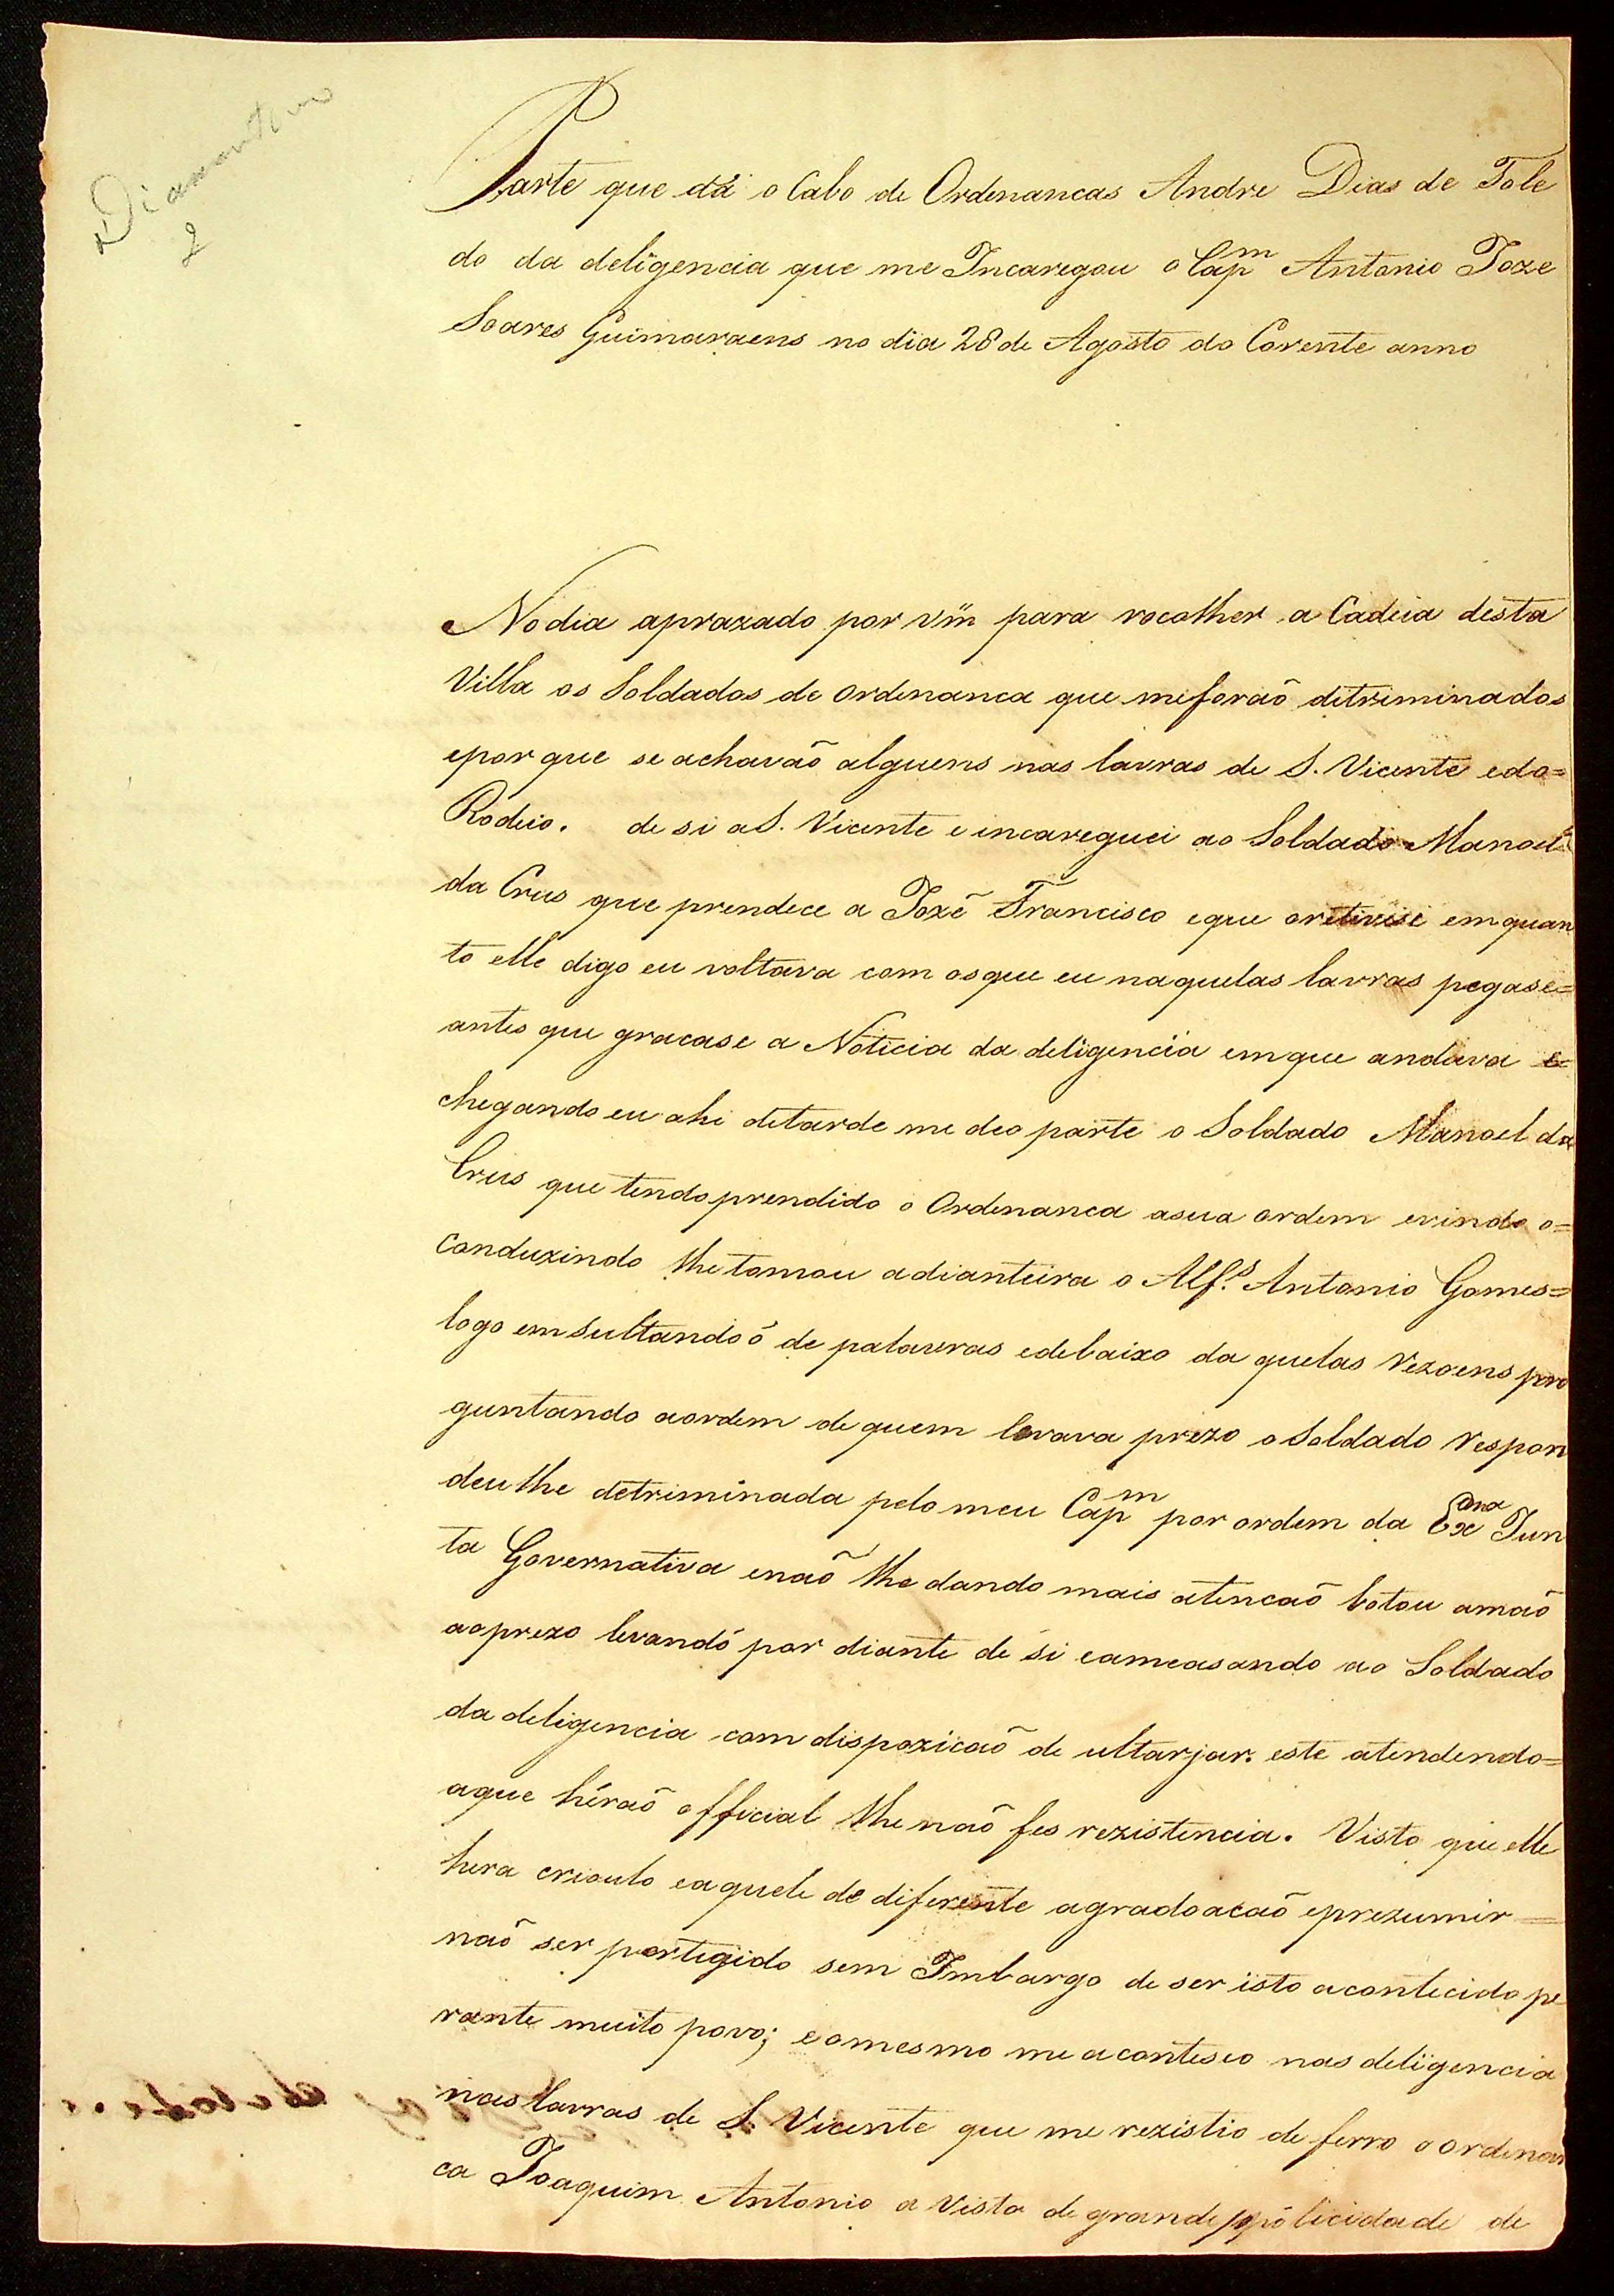 Diamantino
2
Parte que dá o Cabo de Ordenancas Andre Dias de Tole
do da deligencia que me Incaregou o Capm Antonio Joze
Soares Guimaraens no dia 28 de Agosto do Corente anno
No dia aprazado por vm para recolher a Cadeia desta
Villa os Soldados de ordenanca que meforaõ ditreminados
epor que se achavaõ alguens nas lavras de S. Vicente edo=
Rodeio. de si aS. Vicente e incareguei ao Soldado Manoel
da Crus que prendece a Jozé Francisco eque oretivese emquan
to elle digo eu voltava com osque eu naquelas lavras pegase=
antes que gracase a Noticia da deligencia emque andava e=
chegando eu ahi detarde me deo parte o Soldado Manoel da
Crus que tendo prendido o Ordenanca asua ordem evindo o=
Conduzindo lhe tomou adianteira o Alf.s Antonio Gomes=
logo emsultandoó de palavras edebaixo da quelas rezoens per
guntando aordem de quem levava prezo o Soldado respon
deulhe detriminada pelo meu Capm por ordem da Exma Jun
ta Governativa enaõ lhe dando mais atencaõ botou amaõ
aoprezo levandó por diante de si eameasando ao Soldado
da deligencia com dispozicaõ de ultarjar. este atendendo=
aque héraõ official lhe naõ fes rezistencia. Visto que elle
hera crioulo eaquele de diferente agradoacaõ eprezumir=
naõ ser portegido sem Imbargo de ser isto acontecido pe
rante muito povo; eomesmo me aconteseo nas deligencia
nas lavras de S. Vicente que me rezistio de ferro o ordenan
ca Joaquim Antonio a vista de grande policidade de